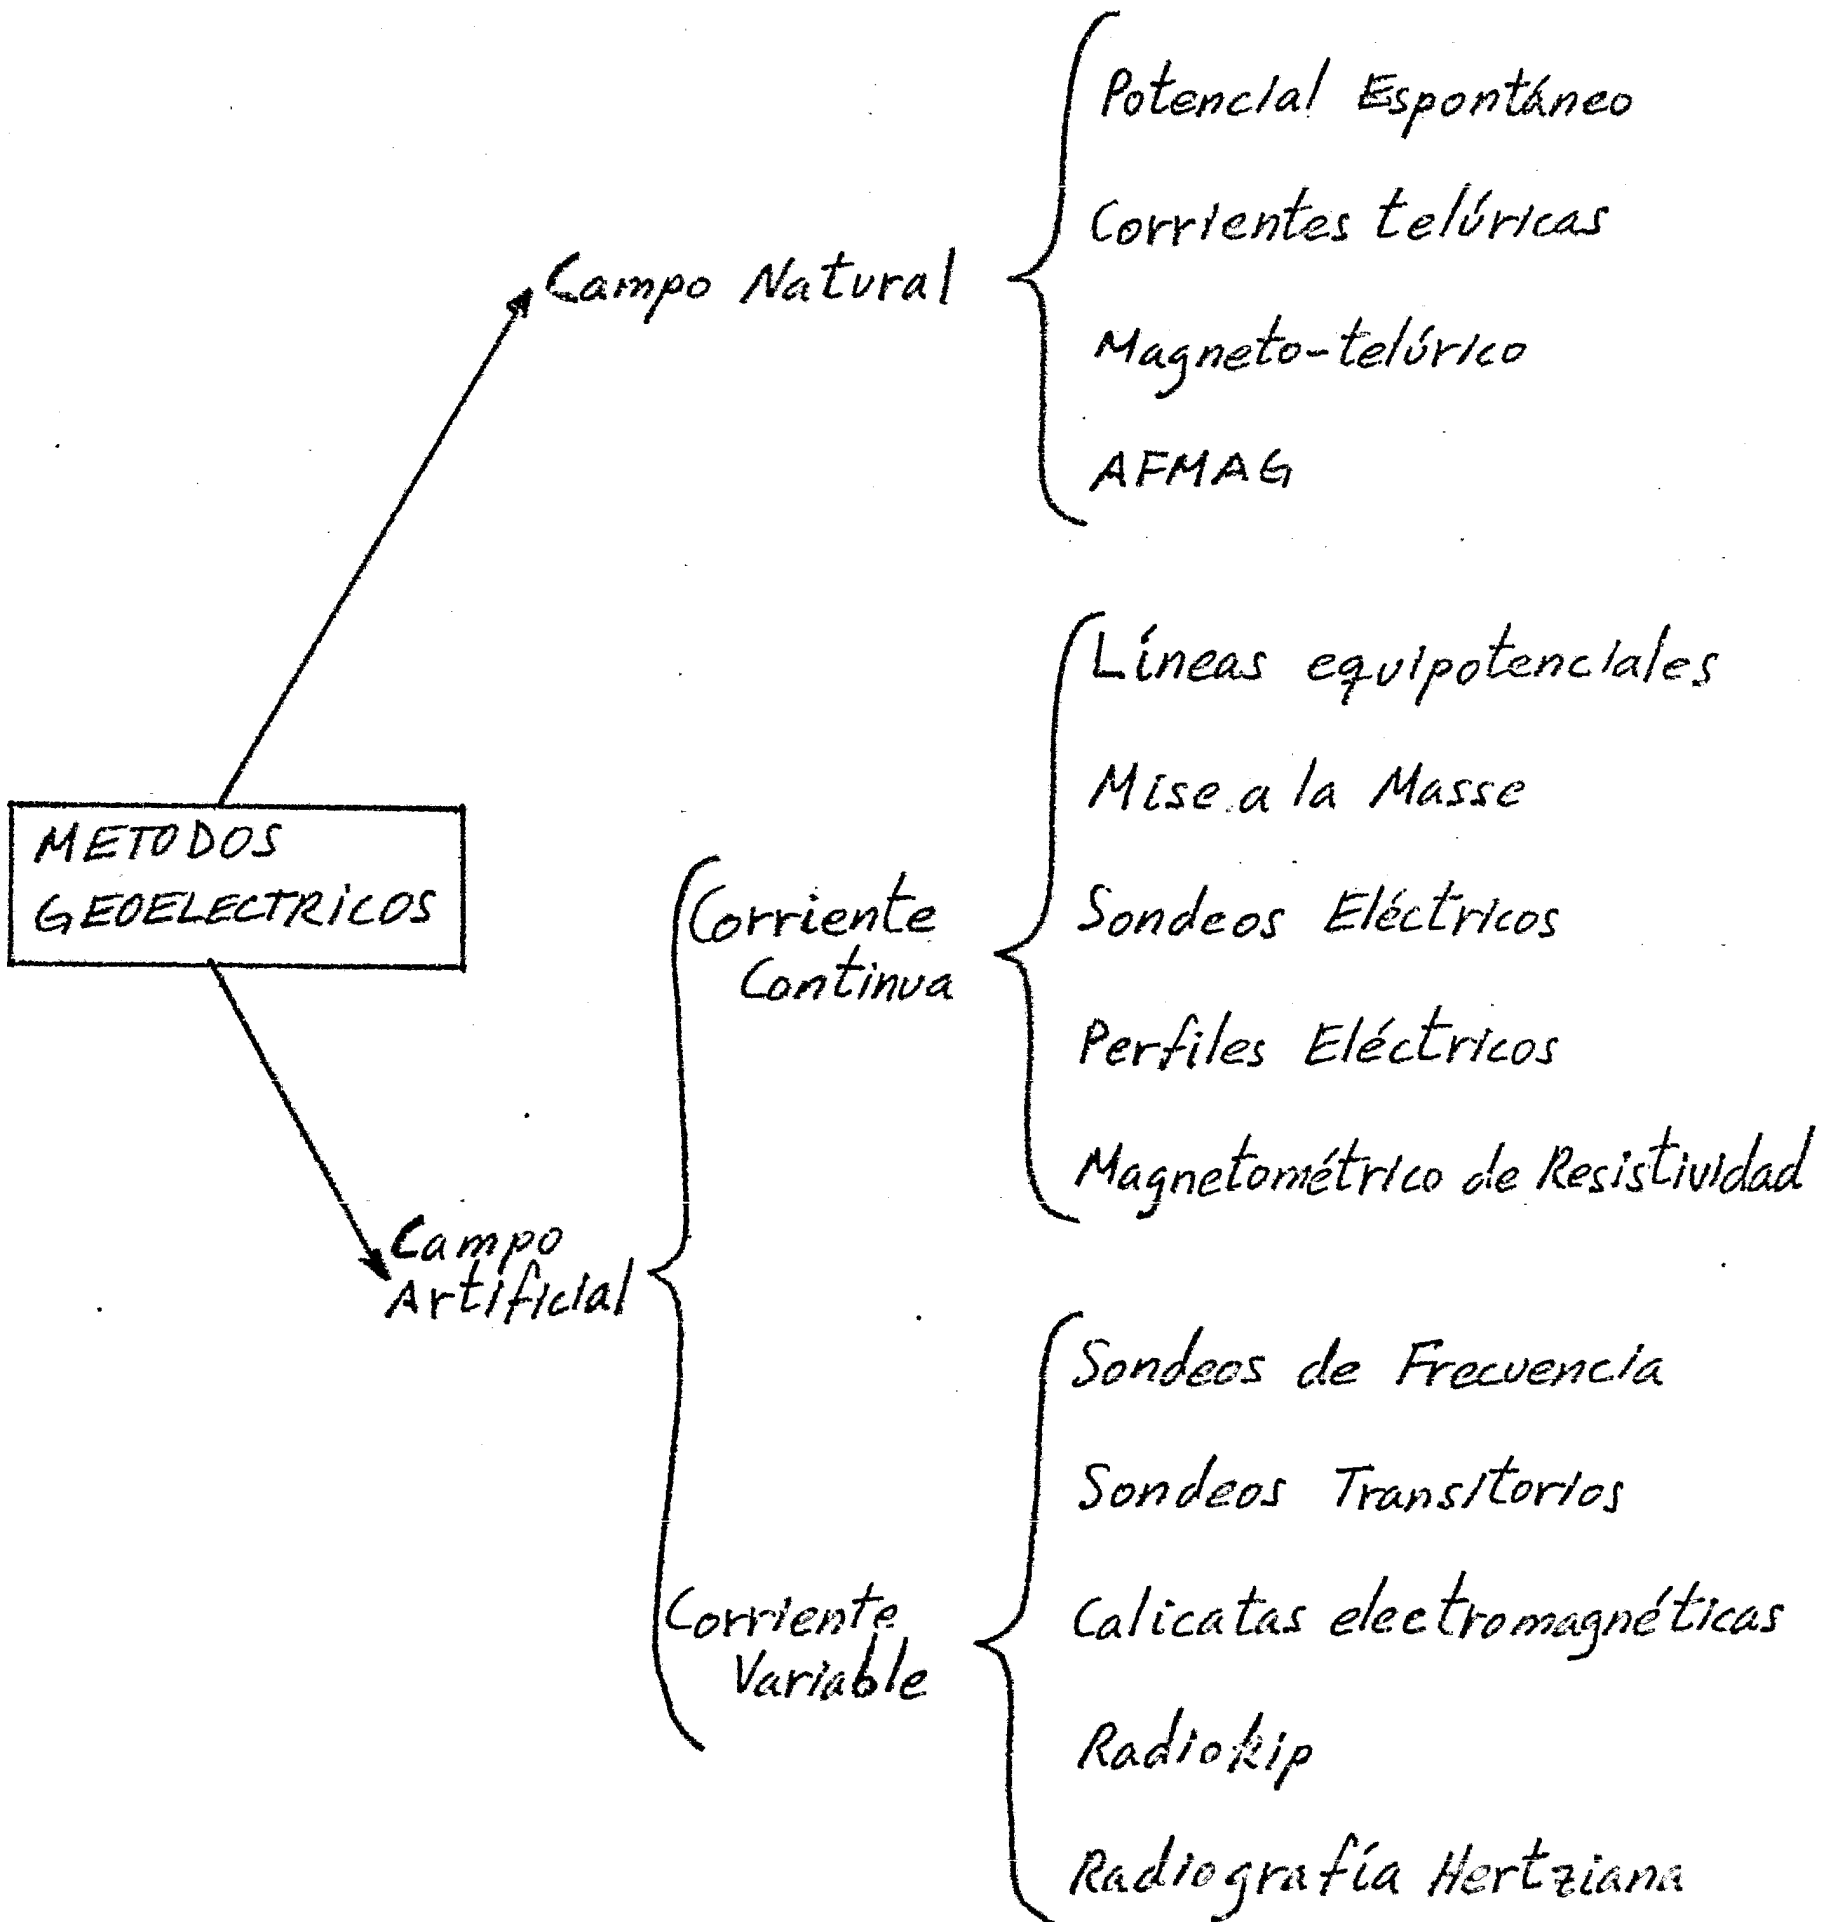 Potencial Espontáneo
Corrientes telúricas
Campo Natural
Magneto-telúrico
AFMAG
METODOS
GEOELECTRICOS
Campo
Artificial
Corriente
Continua
Líneas equipotenciales
Mise a la Masse
Sondeos Eléctricos
Perfiles Eléctricos
Magnetométrico de Resistividad
Corriente
Variable
Sondeos de Frecuencia
Sondeos Transitorios
Calicatas electromagnéticas
Radiokip
Radiografía Hertziana